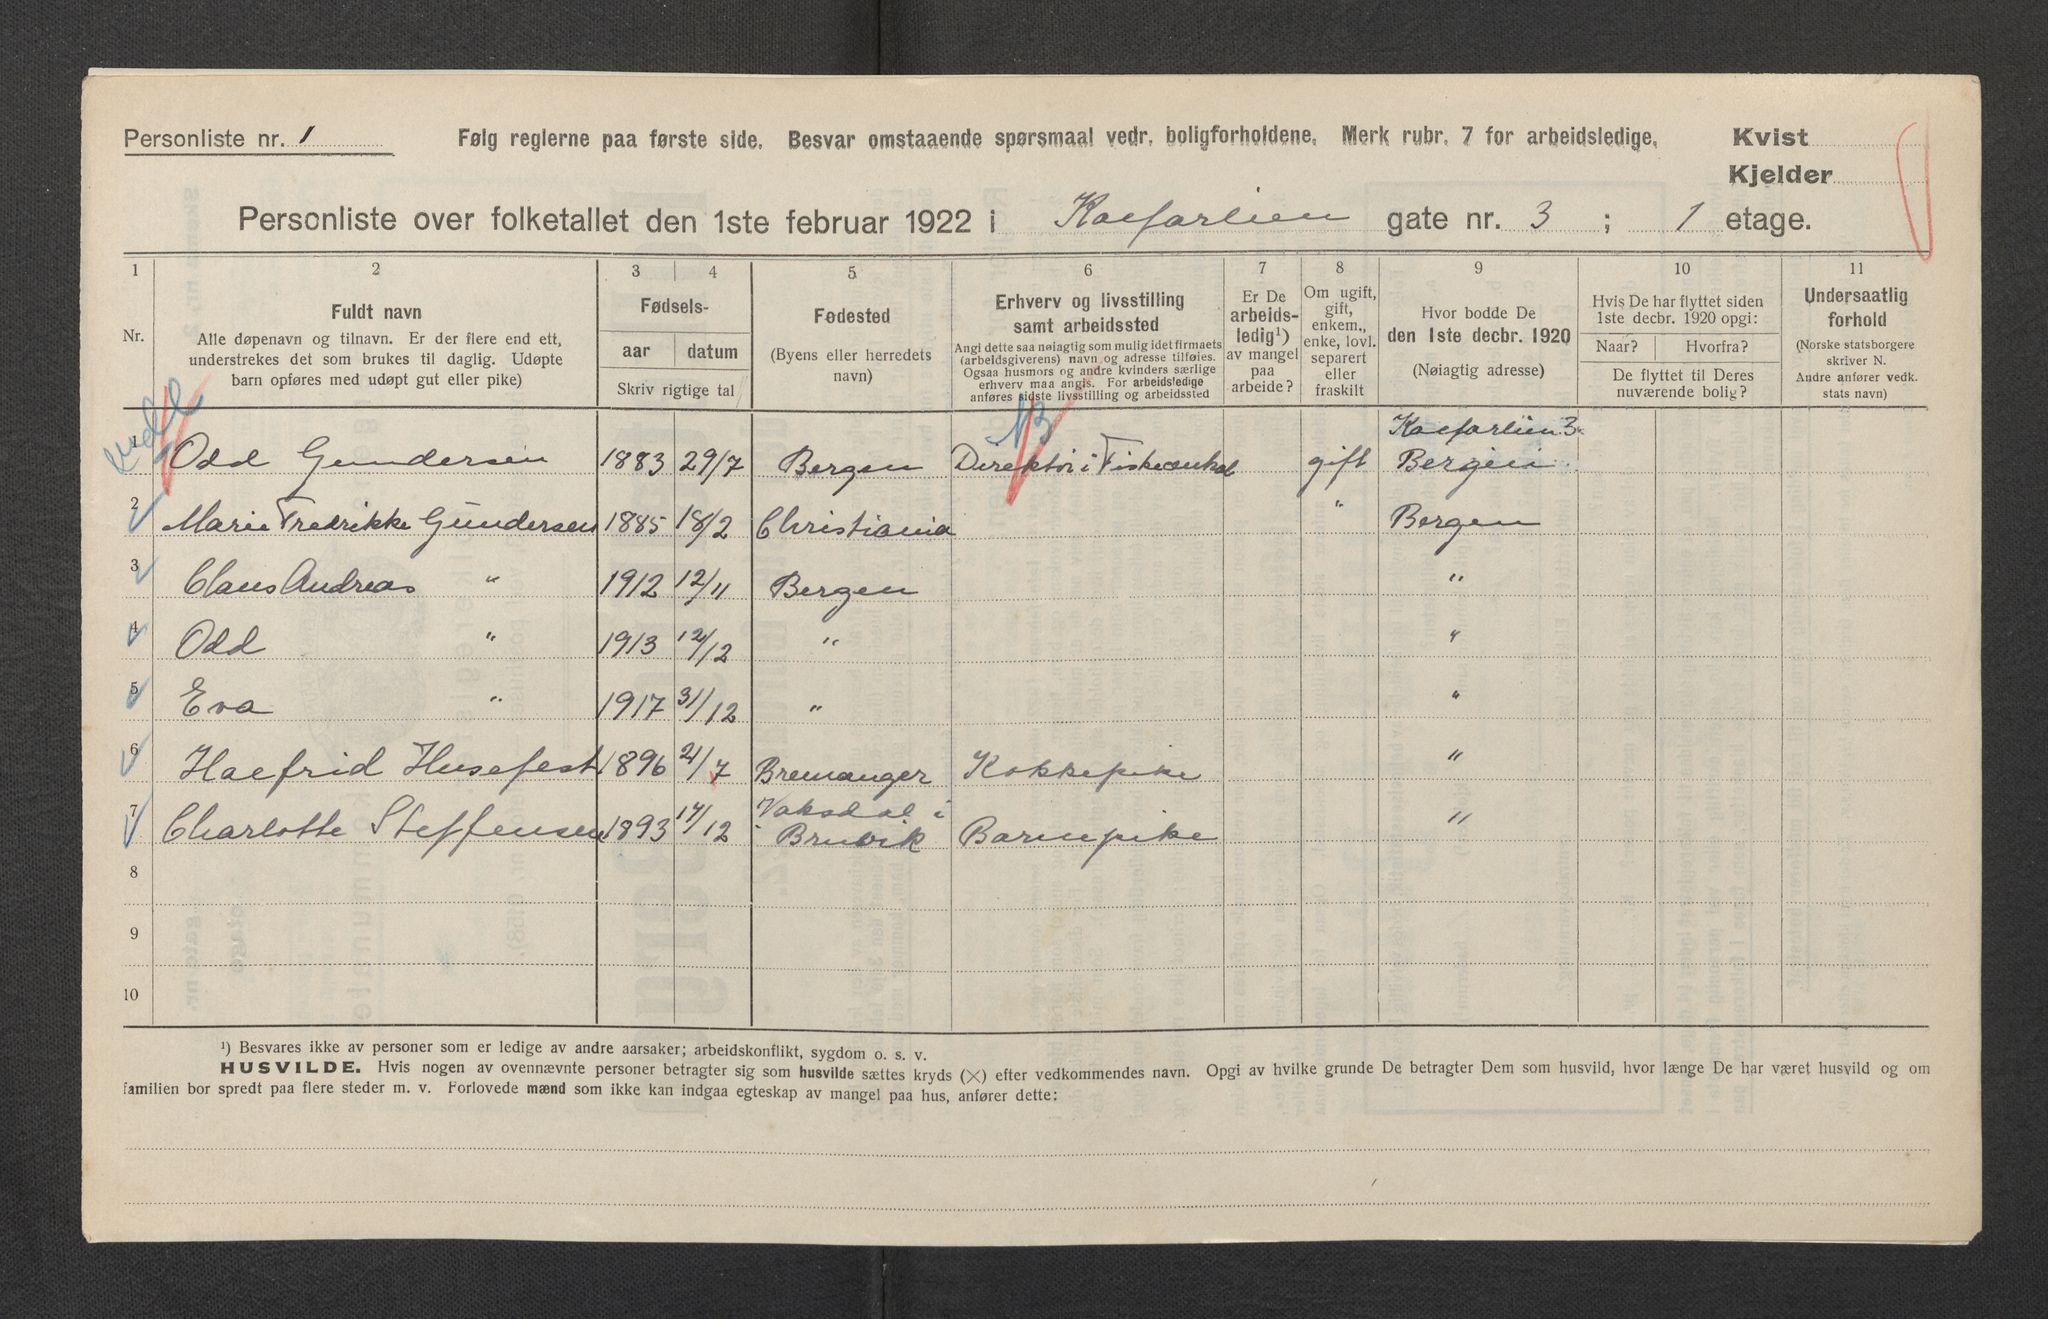 Personliste nr. 1
Følg reglerne paa første side. Besvar omstaaende spørsmaal vedr. boligforholdene. Merk rubr. 7 for arbeidsledige.
Kvist
Kjelder
Personliste over folketallet den 1ste februar 1922 i Kalfarlien gate nr. 3 ; 1 etage.
1 2 3 4 5 6 7 8 9 10 11
Nr.
Fuldt navn
Alle døpenavn og tilnavn. Er der flere end ett,
understrekes det som brukes til daglig. Udøpte
barn opføres med udøpt gut eller pike)
Fødsels-
aar datum
Skriv rigtige tal
Fødested
(Byens eller herredets
navn)
Erhverv og livsstilling
samt arbeidssted
Angi dette saa nøiagtig som mulig idet firmaets
(arbeidsgiverens) navn og adresse tilføies.
Ogsaa husmors og andre kvinders særlige
erhverv maa angis. For arbeidsledige
anføres sidste livsstilling og arbeidssted
Er De
arbeids-
ledig¹)
av mangel
paa
arbeide?
Om ugift,
gift,
enkem.,
enke, lovl.
separert
eller
fraskilt
Hvor bodde De
den 1ste decbr. 1920
(Nøiagtig adresse)
Hvis De har flyttet siden
1ste decbr. 1920 opgi:
Naar? Hvorfra?
De flyttet til Deres
nuværende bolig?
Undersaatlig
forhold
(Norske statsborgere
skriver N.
Andre anfører vedk.
stats navn)
Kalfarlien 3
1 Odd Gundersen 1883 29/7 Bergen Direktör i gift Bergen
2 Marie Fredrikke Gundersen 1885 18/2 Christiania " Bergen
3 Claus Andreas " 1912 12/11 Bergen "
4 Odd " 1913 12/12 " "
5 Eva " 1917 31/12 " "
6 Halfrid Husefest 1896 21/7 Bremanger Kokkepike "
7 Charlotte Steffensen 1893 17/12 Vaksdal i Bruvik Barnepike "
8
9
10
¹) Besvares ikke av personer som er ledige av andre aarsaker; arbeidskonflikt, sygdom o. s. v.
HUSVILDE. Hvis nogen av ovennævnte personer betragter sig som husvilde sættes kryds (×) efter vedkommendes navn. Opgi av hvilke grunde De betragter Dem som husvild, hvor længe De har været husvild og om
familien bor spredt paa flere steder m. v. Forlovede mænd som ikke kan indgaa egteskap av mangel paa hus, anfører dette: